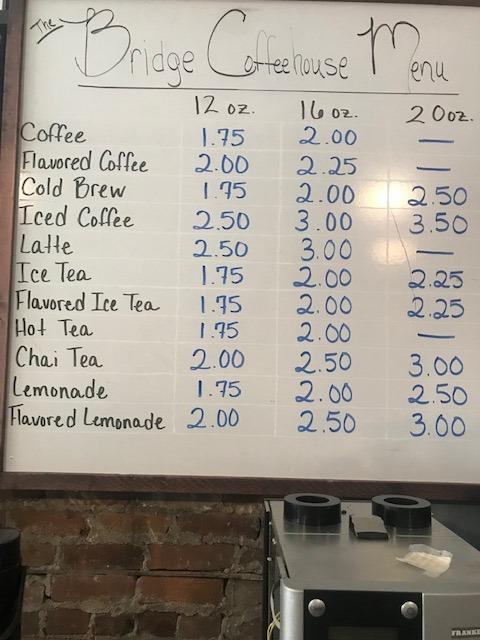 The Bridge Coffeehouse Menu
12 oz. 16 oz. 20oz.
Coffee 1.75 2.00 —
Flavored Coffee 2.00 2.25 —
Cold Brew 1.75 2.00 2.50
Iced Coffee 2.50 3.00 3.50
Latte 2.50 3.00 —
Ice Tea 1.75 2.00 2.25
Flavored Ice Tea 1.75 2.00 2.25
Hot Tea 1.75 2.00 —
Chai Tea 2.00 2.50 3.00
Lemonade 1.75 2.00 2.50
Flavored Lemonade 2.00 2.50 3.00